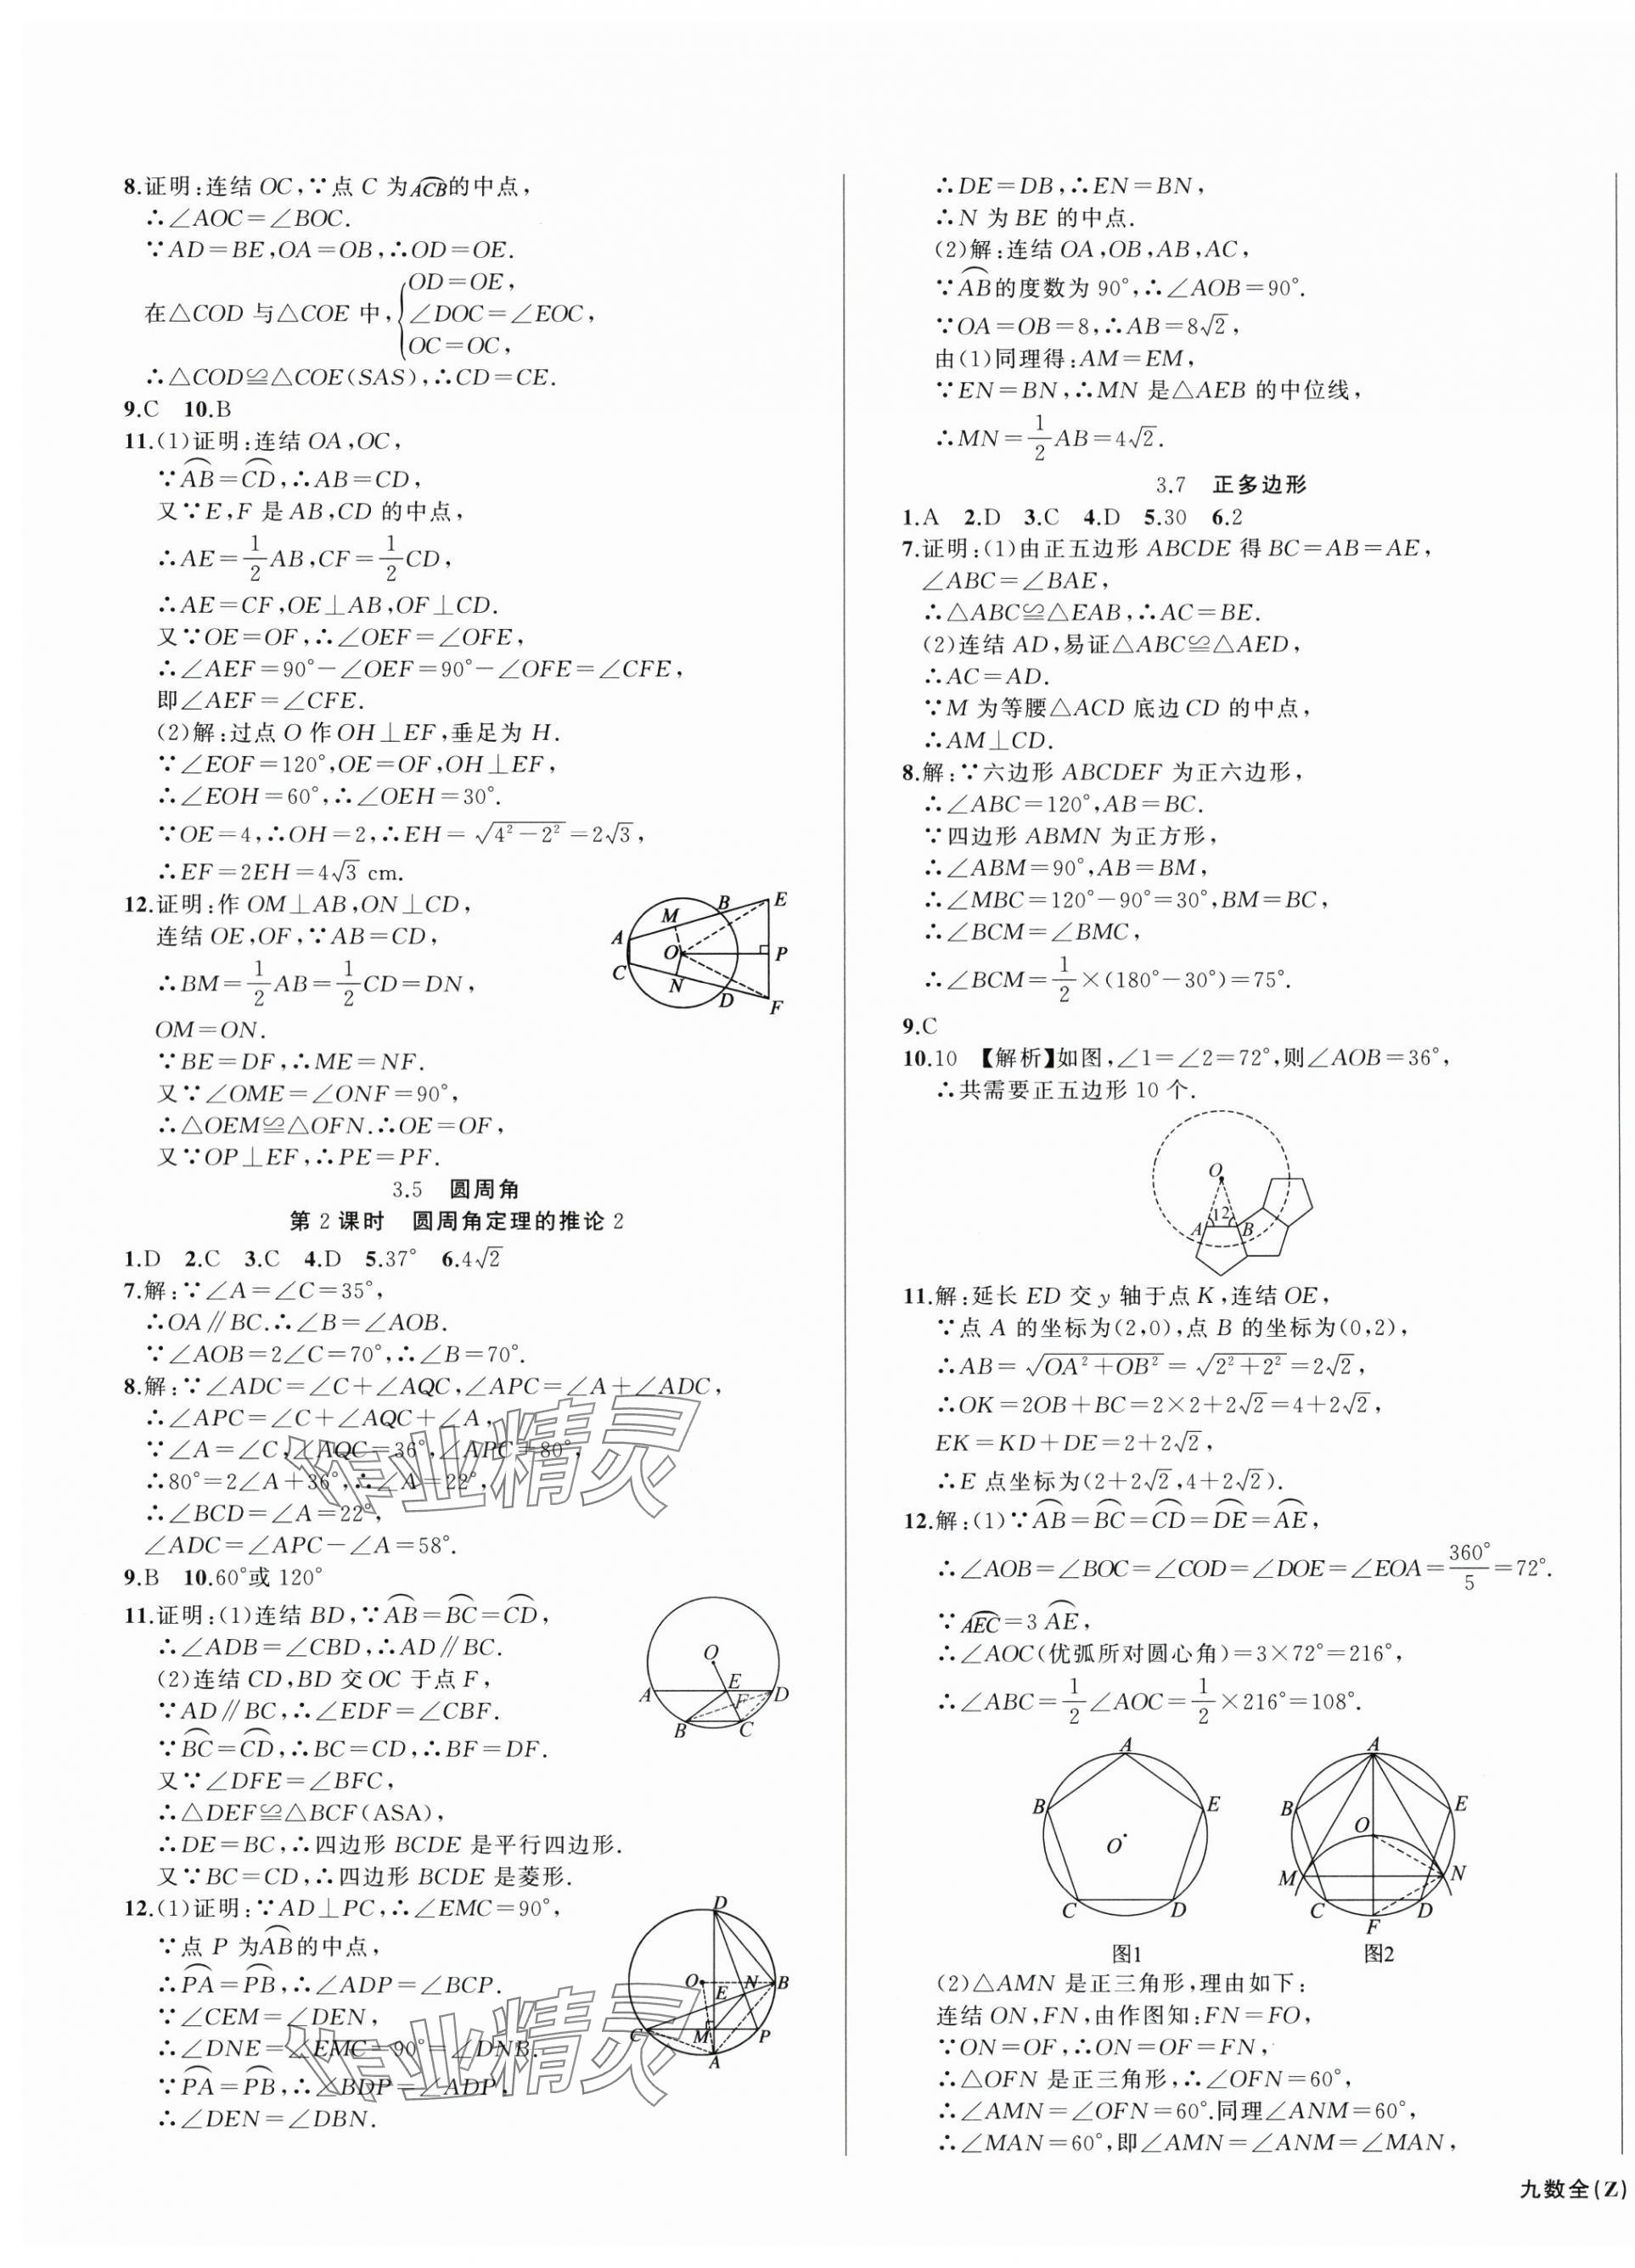 8.证明:连结 OC,∵点 C 为ACB的中点,
∴∠AOC=∠BOC.
∵AD=BE,OA=OB,∴OD=OE.
在△COD 与△COE 中,{OD=OE,
∠DOC=∠EOC,
OC=OC,
∴△COD≌△COE(SAS),∴CD=CE.
9.C 10.B
11.(1)证明:连结 OA,OC,
∵AB=CD,∴AB=CD,
又∵E,F 是 AB,CD 的中点,
∴AE=1/2AB,CF=1/2CD,
∴AE=CF,OE⊥AB,OF⊥CD.
又∵OE=OF,∴∠OEF=∠OFE,
∴∠AEF=90°-∠OEF=90°-∠OFE=∠CFE,
即∠AEF=∠CFE.
(2)解:过点 O 作 OH⊥EF,垂足为 H.
∵∠EOF=120°,OE=OF,OH⊥EF,
∴∠EOH=60°,∴∠OEH=30°.
∵OE=4,∴OH=2,∴EH=√(4²-2²)=2√3,
∴EF=2EH=4√3 cm.
12.证明:作 OM⊥AB,ON⊥CD,
连结 OE,OF,∵AB=CD,
∴BM=1/2AB=1/2CD=DN,
OM=ON.
∵BE=DF,∴ME=NF.
又∵∠OME=∠ONF=90°,
∴△OEM≌△OFN.∴OE=OF,
又∵OP⊥EF,∴PE=PF.
A B C D E F M N O P
3.5 圆周角
第 2 课时 圆周角定理的推论 2
1.D 2.C 3.C 4.D 5.37° 6.4√2
7.解:∵∠A=∠C=35°,
∴OA∥BC.∴∠B=∠AOB.
∵∠AOB=2∠C=70°,∴∠B=70°.
8.解:∵∠ADC=∠C+∠AQC,∠APC=∠A+∠ADC,
∴∠APC=∠C+∠AQC+∠A,
∵∠A=∠C,∠AQC=36°,∠APC=80°,
∴80°=2∠A+36°,∴∠A=22°,
∴∠BCD=∠A=22°,
∠ADC=∠APC-∠A=58°.
作业精灵
9.B 10.60°或 120°
11.证明:(1)连结 BD,∵AB=BC=CD,
∴∠ADB=∠CBD,∴AD∥BC.
(2)连结 CD,BD 交 OC 于点 F,
∵AD∥BC,∴∠EDF=∠CBF.
∵BC=CD,∴BC=CD,∴BF=DF.
又∵∠DFE=∠BFC,
∴△DEF≌△BCF(ASA),
∴DE=BC,∴四边形 BCDE 是平行四边形.
又∵BC=CD,∴四边形 BCDE 是菱形.
O A E F D B C
12.(1)证明:∵AD⊥PC,∴∠EMC=90°,
∵点 P 为AB的中点,
∴PA=PB,∴∠ADP=∠BCP.
∵∠CEM=∠DEN,
∴∠DNE=∠EMC=90°=∠DNB.
∵PA=PB,∴∠BDP=∠ADP,
∴∠DEN=∠DBN.
D O E N B C M P A
作业精灵
∴DE=DB,∴EN=BN,
∴N 为 BE 的中点.
(2)解:连结 OA,OB,AB,AC,
∵AB的度数为 90°,∴∠AOB=90°.
∵OA=OB=8,∴AB=8√2,
由(1)同理得:AM=EM,
∵EN=BN,∴MN 是△AEB 的中位线,
∴MN=1/2AB=4√2.
3.7 正多边形
1.A 2.D 3.C 4.D 5.30 6.2
7.证明:(1)由正五边形 ABCDE 得 BC=AB=AE,
∠ABC=∠BAE,
∴△ABC≌△EAB,∴AC=BE.
(2)连结 AD,易证△ABC≌△AED,
∴AC=AD.
∵M 为等腰△ACD 底边 CD 的中点,
∴AM⊥CD.
8.解:∵六边形 ABCDEF 为正六边形,
∴∠ABC=120°,AB=BC.
∵四边形 ABMN 为正方形,
∴∠ABM=90°,AB=BM,
∴∠MBC=120°-90°=30°,BM=BC,
∴∠BCM=∠BMC,
∴∠BCM=1/2×(180°-30°)=75°.
9.C
10.10 【解析】如图,∠1=∠2=72°,则∠AOB=36°,
∴共需要正五边形 10 个.
O 1 2 A B
11.解:延长 ED 交 y 轴于点 K,连结 OE,
∵点 A 的坐标为(2,0),点 B 的坐标为(0,2),
∴AB=√(OA²+OB²)=√(2²+2²)=2√2,
∴OK=2OB+BC=2×2+2√2=4+2√2,
EK=KD+DE=2+2√2,
∴E 点坐标为(2+2√2,4+2√2).
12.解:(1)∵AB=BC=CD=DE=AE,
∴∠AOB=∠BOC=∠COD=∠DOE=∠EOA=360°/5=72°.
∵AEC=3 AE,
∴∠AOC(优弧所对圆心角)=3×72°=216°,
∴∠ABC=1/2∠AOC=1/2×216°=108°.
A B E O C D
图1
A B E O M N C D F
图2
(2)△AMN 是正三角形,理由如下:
连结 ON,FN,由作图知:FN=FO,
∵ON=OF,∴ON=OF=FN,
∴△OFN 是正三角形,∴∠OFN=60°,
∴∠AMN=∠OFN=60°.同理∠ANM=60°,
∴∠MAN=60°,即∠AMN=∠ANM=∠MAN,
九数全(Z)